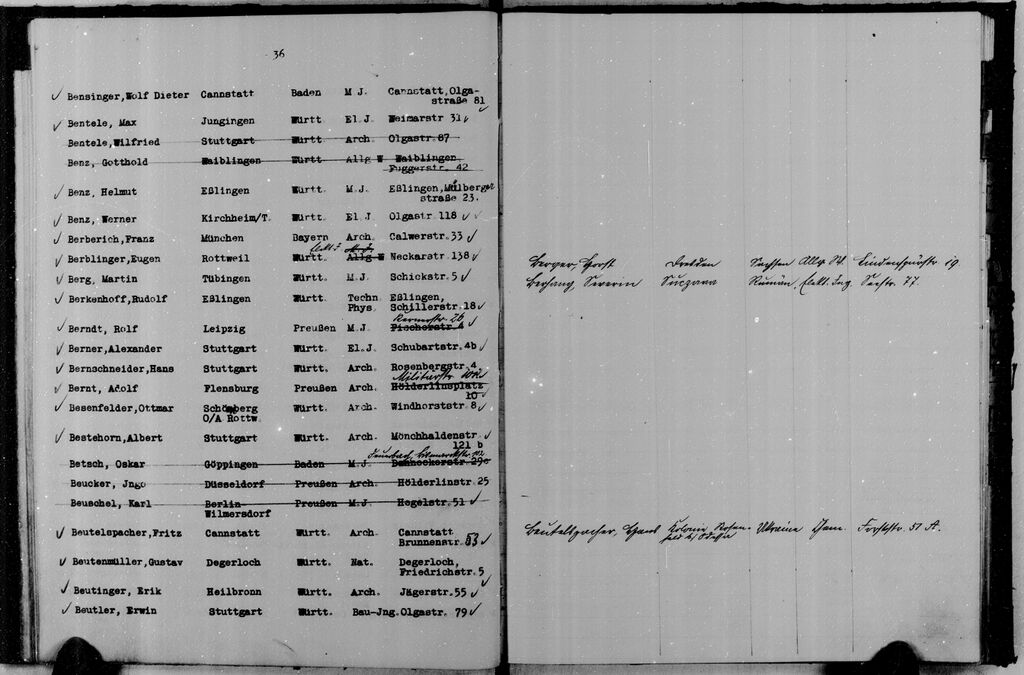 36
✓ Bensinger,Wolf Dieter Cannstatt Baden M.J. Cannstatt,Olga-
straße 81 ✓
✓ Bentele, Max Jungingen Württ El.J. Weimarstr 31 ✓
Bentele,Wilfried Stuttgart Württ Arch. Olgastr.87
Benz, Gotthold Waiblingen Württ Allg W Waiblingen
Fuggerstr. 42
✓ Benz, Helmut Eßlingen Württ. M.J. Eßlingen,Mülberger
straße 23.
✓ Benz, Werner Kirchheim/T. Württ. El.J Olgastr 118 ✓ ✓
✓ Berberich,Franz München Bayern Arch. Calwerstr.33 ✓
✓ Berblinger,Eugen Rottweil Württ. Allg W Neckarstr 138 ✓
✓ Berg, Martin Tübingen Württ. M.J. Schickstr.5 ✓
✓ Berkenhoff,Rudolf Eßlingen Württ. Techn. Eßlingen,
Phys. Schillerstr.18 ✓
Kernerstr. 26
✓ Berndt, Rolf Leipzig Preußen M.J. Fischerstr 4 ✓
✓ Berner,Alexander Stuttgart Württ. El.J. Schubartstr.4b ✓
✓ Bernschneider,Hans Stuttgart Württ. Arch. Rosenbergstr.4
Militärstr.
✓ Bernt, Adolf Flensburg Preußen Arch. Hölderlinsplatz
10 ✓
✓ Besenfelder,Ottmar Schömberg Württ. Arch. Windhorststr 8 ✓
O/A Rottw.
✓ Bestehorn,Albert Stuttgart Württ. Arch. Mönchhaldenstr. ✓
121 b
Feuerbach, Bismarckstr. 102
Betsch, Oskar Göppingen Baden M.J. Danneckerstr 29c
Beucker, Jngo Düsseldorf Preußen Arch. Hölderlinstr 25
Beuschel, Karl Berlin- Preußen M.J. Hegelstr.51 ✓
Wilmersdorf
✓ Beutelspacher,Fritz Cannstatt Württ. Arch. Cannstatt
Brunnenstr.53 ✓
✓ Beutenmüller,Gustav Degerloch Württ. Mat. Degerloch,
Friedrichstr.5 ✓
✓ Beutinger, Erik Heilbronn Württ. Arch. Jägerstr.55 ✓
✓ Beutler, Erwin Stuttgart Württ. Bau-Jng.Olgastr. 79 ✓
Berger, Horst Dresden Sachsen Allg. W. Lindenspürstr. 19.
Severin Suczawa Rumän. Elekt. Ing. Seestr. 77.
Beutelspacher, Hans Kolonie Rosen- Ukraine Chem. Forststr. 51 A.
feld b/ Odessa